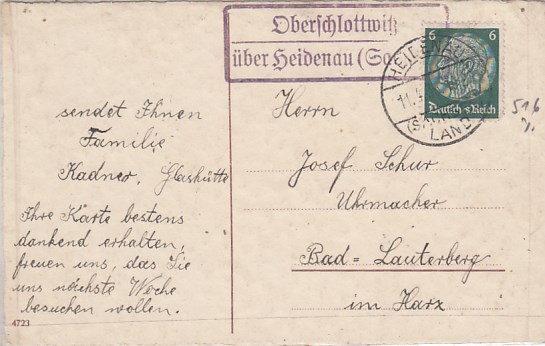 Oberschlottwitz
über Heidenau (Sa
6 6
Deutsches Reich
HEIDENAU
11.
(SACHS)
LAND
516
sendet Ihnen
Familie
Kadner. Glashütte
Ihre Karte bestens
dankend erhalten,
freuen uns, das Sie
uns nächste Woche
besuchen wollen.
4723
Herrn
Josef Schur
Uhrmacher
Bad=Lauterberg
im Harz